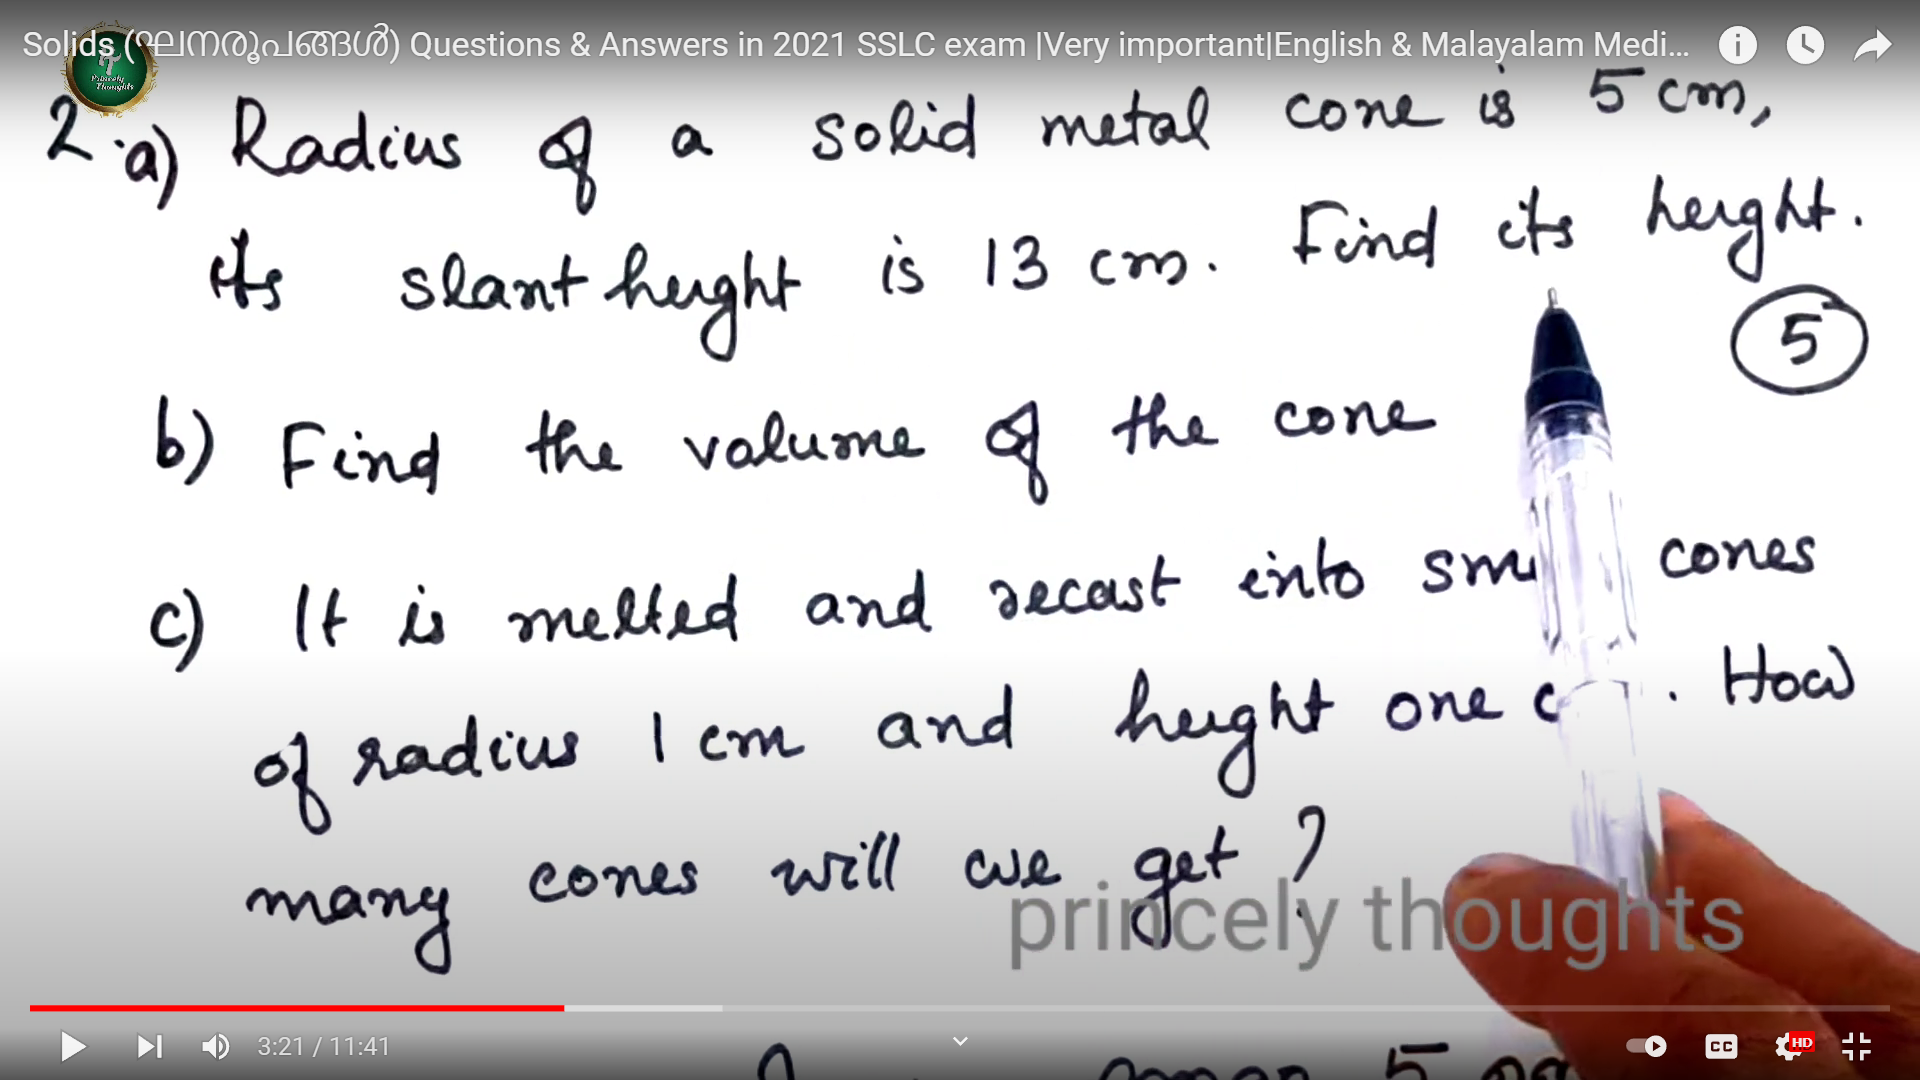 Solids (ഘനരൂപങ്ങൾ) Questions & Answers in 2021 SSLC exam |Very important|English & Malayalam Medi...
Princely
Thoughts
2. a) Radius of a solid metal cone is 5 cm,
its slant height is 13 cm. Find its height.
5
b) Find the volume of the cone
c) It is melted and recast into cones
of radius 1 cm and height one . How
many cones will we get ?
princely thoughts
3:21 / 11:41
CC
HD
5